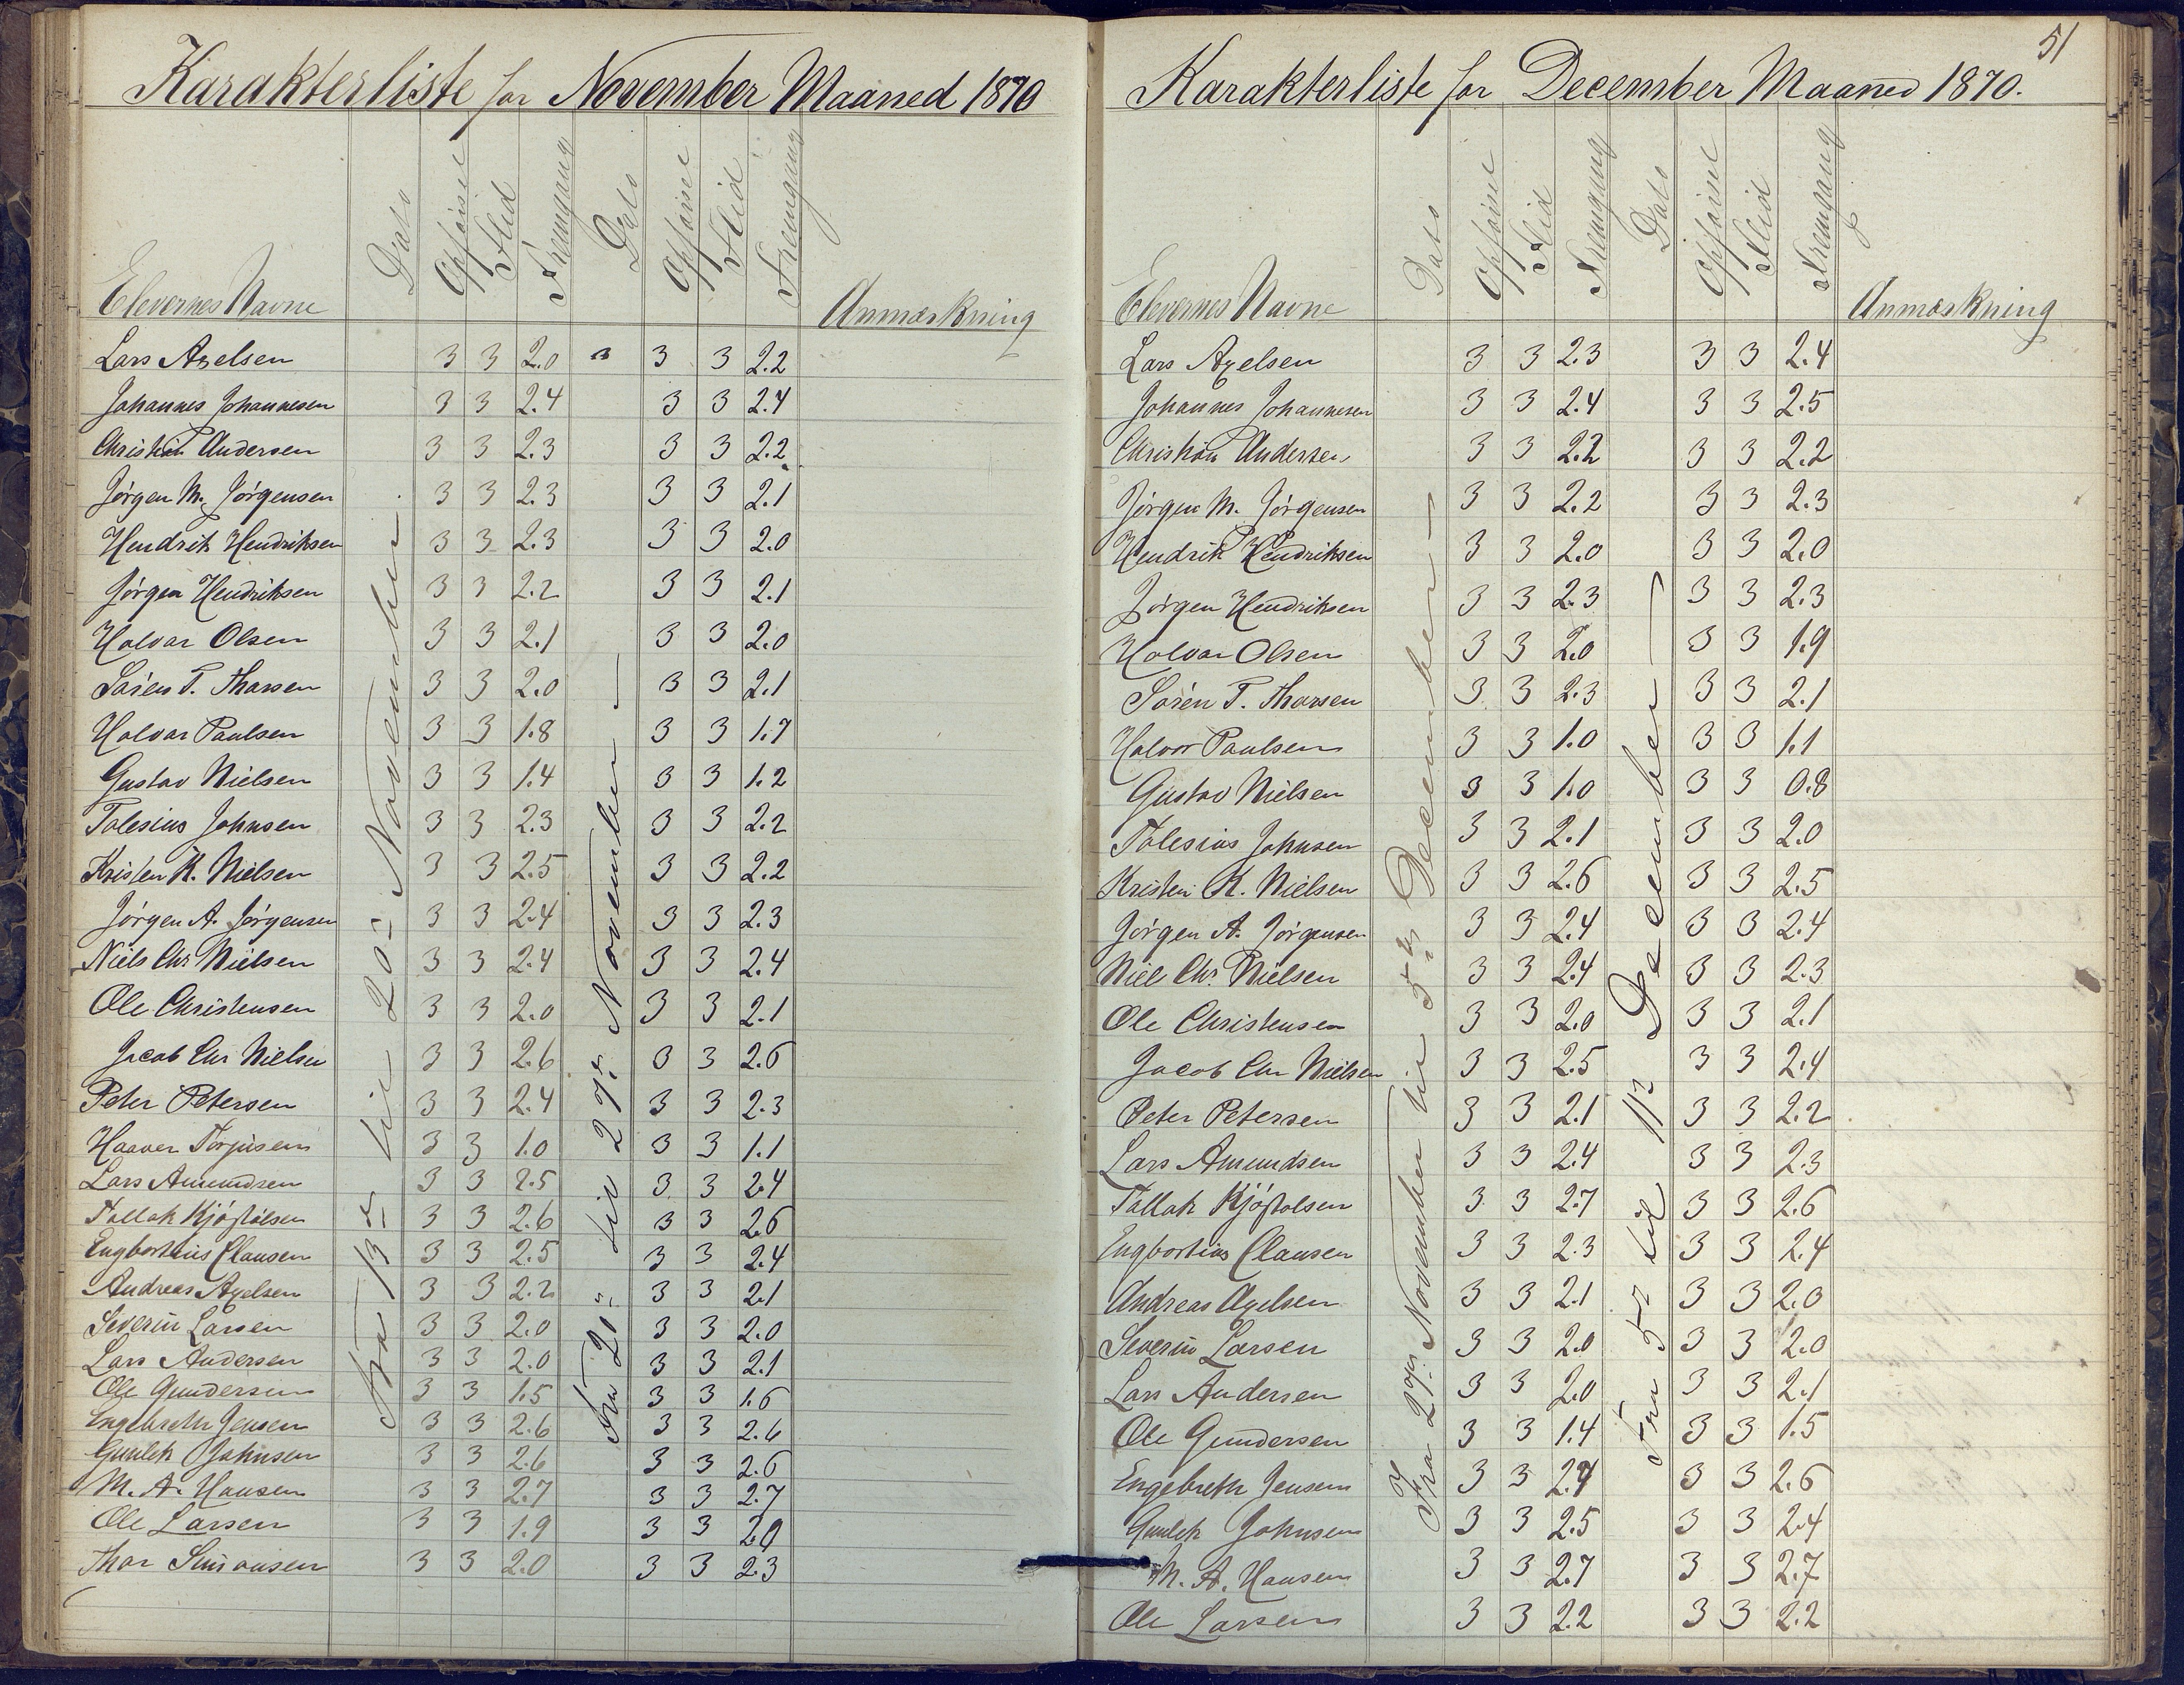 Karakterliste for November Maaned 1870
Elevernes Navne Dato Opførsel Flid Fremgang Dato Opførsel Flid Fremgang Anmærkning
Fra 13de til 20de November
Fra 20de til 27de November
Lars Axelsen 3 3 2.0 3 3 2.2
Johannes Johannesen 3 3 2.4 3 3 2.4
Christian Andersen 3 3 2.3 3 3 2.2
Jörgen M. Jörgensen 3 3 2.3 3 3 2.1
Hendrik Hendriksen 3 3 2.3 3 3 2.0
Jörgen Hendriksen 3 3 2.2 3 3 2.1
Halvar Olsen 3 3 2.1 3 3 2.0
Sören T. Tharsen 3 3 2.0 3 3 2.1
Halvar Paulsen 3 3 1.8 3 3 1.7
Gustav Nielsen 3 3 1.4 3 3 1.2
Tolesius Johnsen 3 3 2.3 3 3 2.2
Kristen K. Nielsen 3 3 2.5 3 3 2.2
Jörgen A. Jörgensen 3 3 2.4 3 3 2.3
Niels Chr Nielsen 3 3 2.4 3 3 2.4
Ole Christensen 3 3 2.0 3 3 2.1
Jacob Chr Nielsen 3 3 2.6 3 3 2.6
Peter Petersen 3 3 2.4 3 3 2.3
Haaver Torjusen 3 3 1.0 3 3 1.1
Lars Amundsen 3 3 2.5 3 3 2.4
Tallak Kjöstolsen 3 3 2.6 3 3 2.6
Engbortius Clausen 3 3 2.5 3 3 2.4
Andreas Axelsen 3 3 2.2 3 3 2.1
Severin Larsen 3 3 2.0 3 3 2.0
Lars Andersen 3 3 2.0 3 3 2.1
Ole Gundersen 3 3 1.5 3 3 1.6
Engebreth Jensen 3 3 2.6 3 3 2.6
Gunlek Johnsen 3 3 2.6 3 3 2.6
M. A. Hansen 3 3 2.7 3 3 2.7
Ole Larsen 3 3 1.9 3 3 2.0
Thor Simonsen 3 3 2.0 3 3 2.3
51
Karakterliste for December Maaned 1870.
Elevernes Navne Dato Opförsel Flid Fremgang Dato Opförsel Flid Fremgang Anmærkning
Fra 27de November til 5te December
Fra 5te til 11te December
Lars Axelsen 3 3 2.3 3 3 2.4
Johannes Johannesen 3 3 2.4 3 3 2.5
Christian Andersen 3 3 2.2 3 3 2.2
Jörgen M. Jörgensen 3 3 2.2 3 3 2.3
Hendrik Hendriksen 3 3 2.0 3 3 2.0
Jörgen Hendriksen 3 3 2.3 3 3 2.3
Halvar Olsen 3 3 2.0 3 3 1.9
Sören T. Tharsen 3 3 2.3 3 3 2.1
Halvor Paulsen 3 3 1.0 3 3 1.1
Gustav Nielsen 3 3 1.0 3 3 0.8
Tolesius Johnsen 3 3 2.1 3 3 2.0
Kristen K. Nielsen 3 3 2.6 3 3 2.5
Jörgen A. Jörgensen 3 3 2.4 3 3 2.4
Niels Chr. Nielsen 3 3 2.4 3 3 2.3
Ole Christensen 3 3 2.0 3 3 2.1
Jacob Chr Nielsen 3 3 2.5 3 3 2.4
Peter Petersen 3 3 2.1 3 3 2.2
Lars Amundsen 3 3 2.4 3 3 2.3
Tallak Kjöstolsen 3 3 2.7 3 3 2.6
Engbortius Clausen 3 3 2.3 3 3 2.4
Andreas Axelsen 3 3 2.1 3 3 2.0
Severin Larsen 3 3 2.0 3 3 2.0
Lars Andersen 3 3 2.0 3 3 2.1
Ole Gundersen 3 3 1.4 3 3 1.5
Engebreth Jensen 3 3 2.4 3 3 2.6
Gunlek Johnsen 3 3 2.5 3 3 2.4
M. A. Hansen 3 3 2.7 3 3 2.7
Ole Larsen 3 3 2.2 3 3 2.2